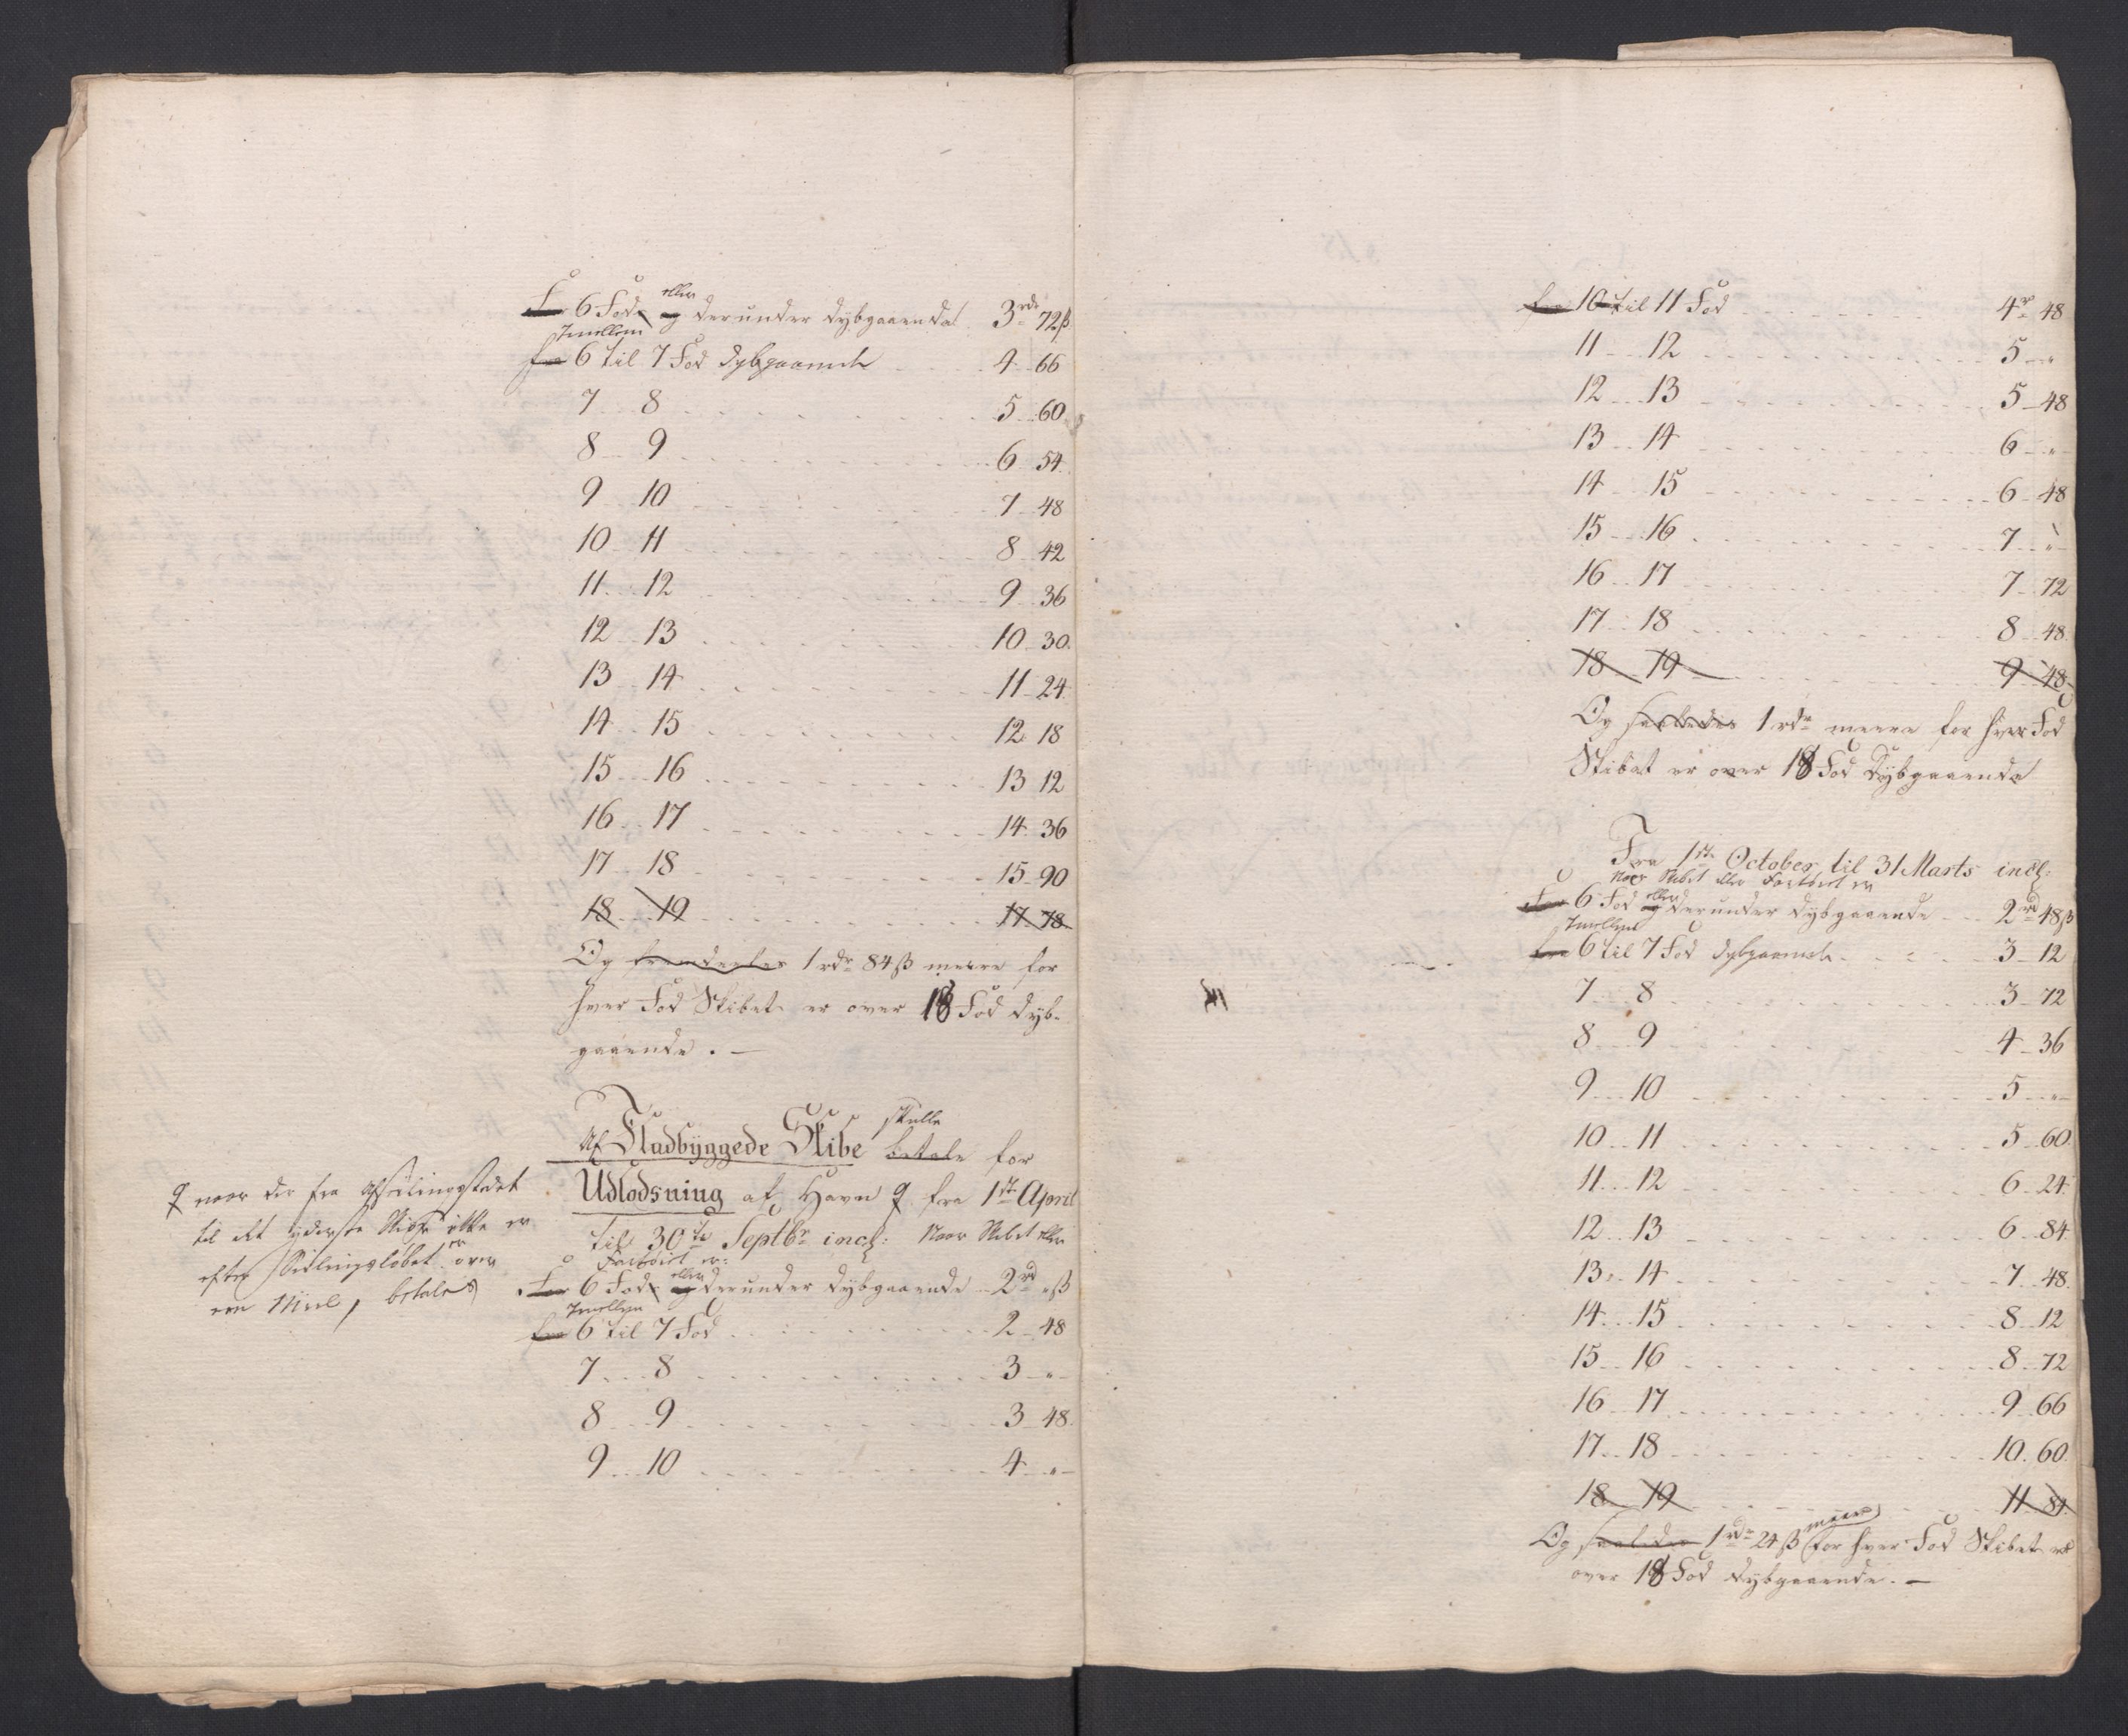 For 6 Fod og eller derunder dybgaaende 3 rdr 72 ß
Imellem
fra 6 til 7 Fod dybgaaende 4 66
7 8 5 60
8 9 6 54
9 10 7 48
10 11 8 42
11 12 9 36
12 13 10 30
13 14 11 24
14 15 12 18
15 16 13 12
16 17 14 36
17 18 15 90
18 19 17 78
Og fremdeeles 1 rdr 84 ß meere for
hver Fod Skibet er over 18 Fod dyb-
gaaende. —
skulle
Af Fladbyggede Skibe betale for
Udlodsning af Havn fra 1ste April
til 30te Septbr incl: Naar Skibet eller
Fartøiet er:
For 6 Fod og eller derunder dybgaaende 2 rd " ß
Imellem
fra 6 til 7 Fod 2 48
7 8 3 "
8 9 3 48
9 10 4 "
naar der fra Afseilingsstedet
til det yderste Skiær ikke er
efter Seilingsløbet er over
een Miil, betales
fra 10 til 11 Fod 4 r 48
11 12 5 "
12 13 5 48
13 14 6 "
14 15 6 48
15 16 7 "
16 17 7 72
17 18 8 48
18 19 9 48
Og saaledes 1 rdr meere for hver Fod
Skibet er over 18 Fod Dybgaaende
Fra 1ste October til 31 Marts incl:
Naar Skibet eller Fartøiet er
For 6 Fod og eller derunder dybgaaende 2 rd 48 ß
Imellem
fra 6 til 7 Fod dybgaaende 3 12
7 8 3 72
8 9 4 36
9 10 5 "
10 11 5 60
11 12 6 24
12 13 6 84
13 14 7 48
14 15 8 12
15 16 8 72
16 17 9 66
17 18 10 60
18 19 11 84
Og saaledes 1 rdr 24 ß meere for hver Fod Skibet er
over 18 Fod dybgaaende. —